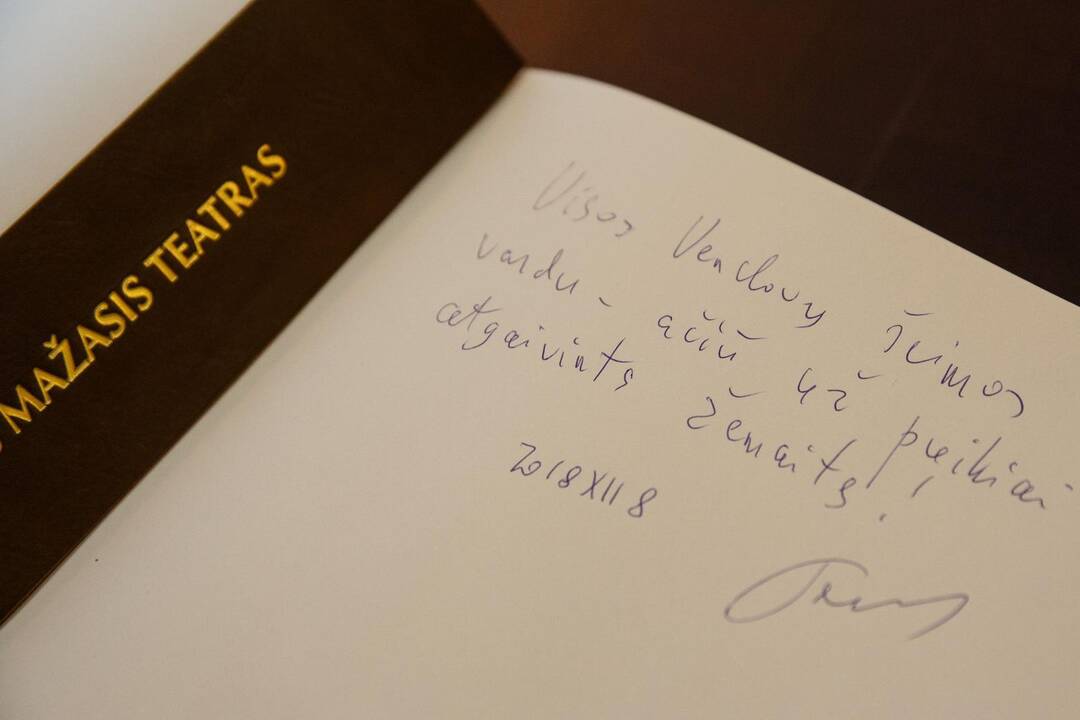 MAŽASIS TEATRAS
Visos Venclovų šeimos
vardu – ačiū už puikiai
atgaivintą Žemaitę!
2018 XII 8